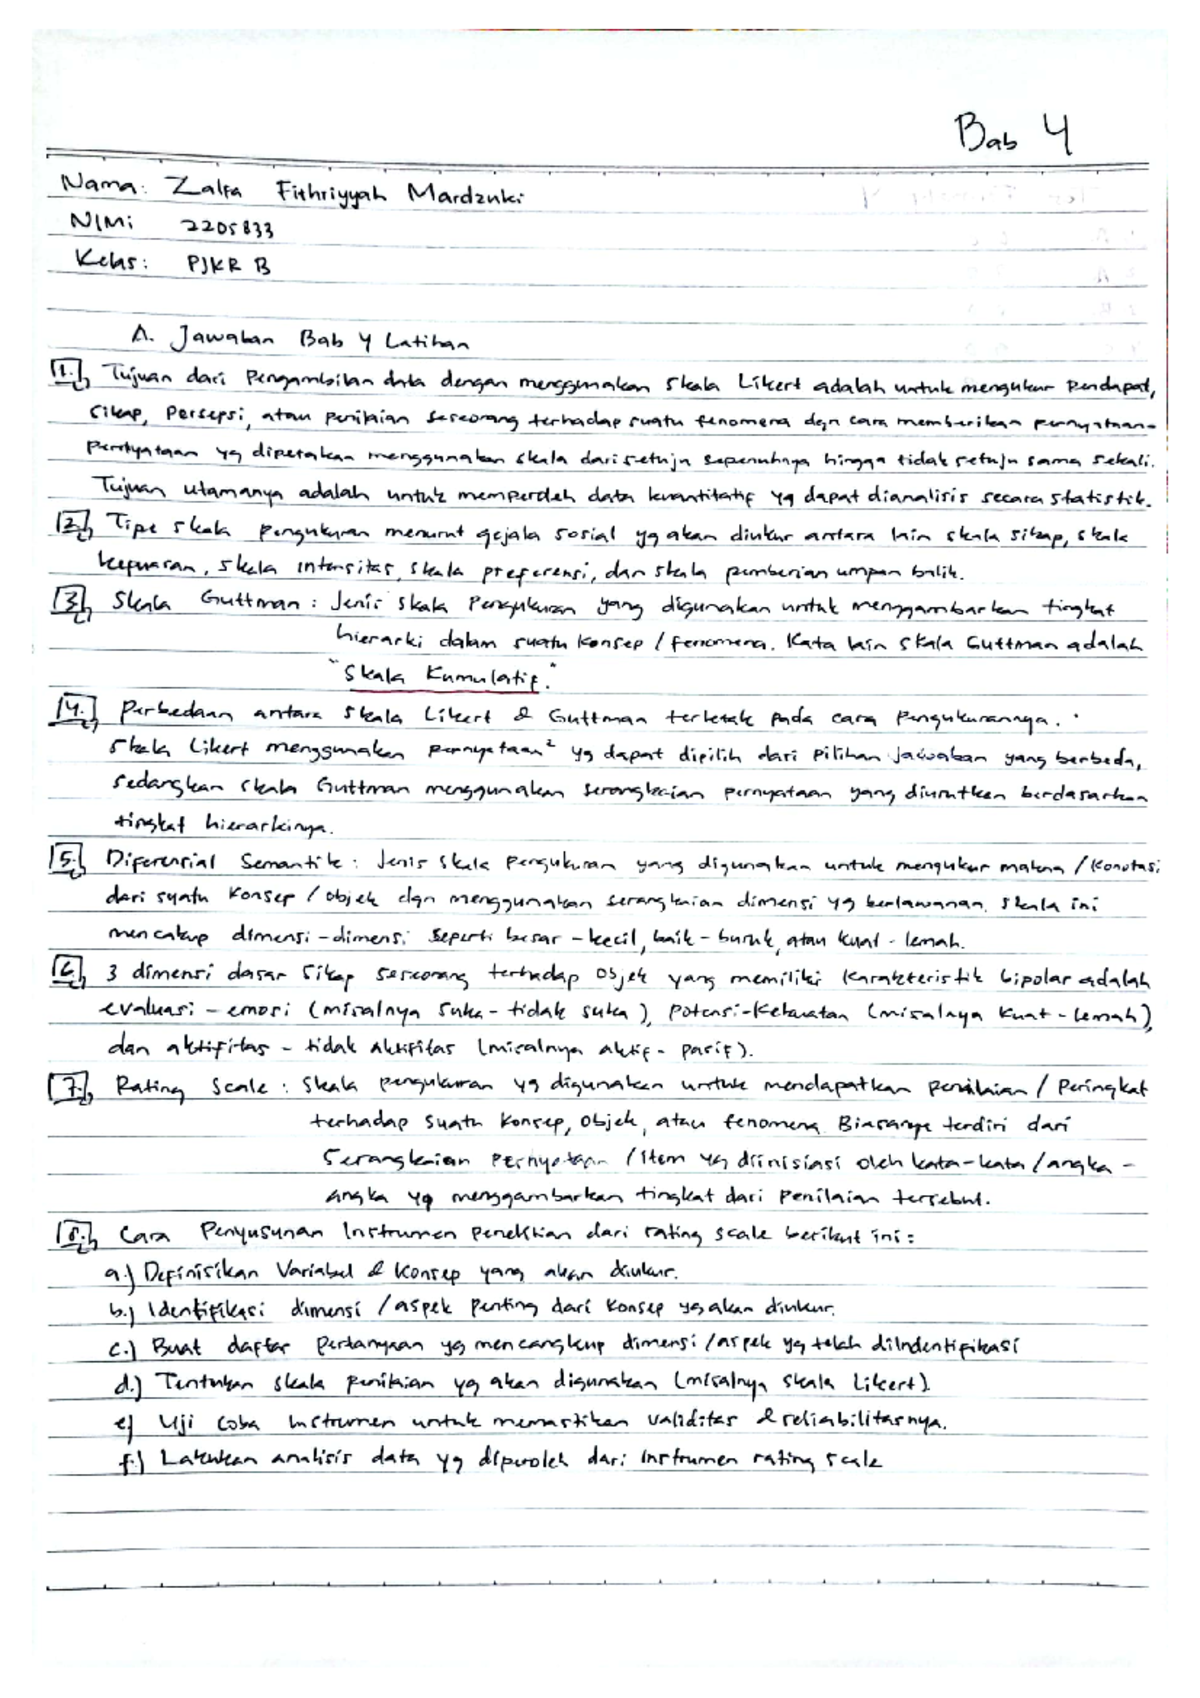 Bab 4
Nama: Zalfa Fithriyyah Mardzuki
NIM: 2205833
Kelas: PJKR B
A. Jawaban Bab 4 Latihan
1. Tujuan dari Pengambilan data dengan menggunakan Skala Likert adalah untuk mengukur Pendapat,
sikap, Persepsi, atau penilaian seseorang terhadap suatu fenomena dgn cara memberikan pernyataan-
Pernyataan yg dipetakan menggunakan skala dari setuju sepenuhnya hingga tidak setuju sama sekali.
Tujuan utamanya adalah untuk memperoleh data kuantitatif yg dapat dianalisis secara statistik.
2. Tipe skala pengukuran menurut gejala sosial yg akan diukur antara lain skala sikap, skala
kepuasan, skala intensitas, skala preferensi, dan skala pemberian umpan balik.
3. Skala Guttman : Jenis skala Pengukuran yang digunakan untuk menggambarkan tingkat
hierarki dalam suatu konsep / fenomena. Kata lain skala Guttman adalah
"Skala Kumulatif."
4. Perbedaan antara skala Likert & Guttman terletak pada cara Pengukurannya.
Skala Likert menggunakan pernyataan² yg dapat dipilih dari pilihan jawaban yang berbeda,
sedangkan skala Guttman menggunakan serangkaian pernyataan yang diurutkan berdasarkan
tingkat hierarkinya.
5. Diferensial Semantik : Jenis skala pengukuran yang digunakan untuk mengukur makna / Konotasi
dari suatu konsep / objek dgn menggunakan serangkaian dimensi yg berlawanan. Skala ini
mencakup dimensi-dimensi seperti besar-kecil, baik-buruk, atau kuat-lemah.
6. 3 dimensi dasar sikap seseorang terhadap objek yang memiliki karakteristik bipolar adalah
evaluasi - emosi (misalnya suka - tidak suka), potensi-kekuatan (misalnya kuat-lemah),
dan aktifitas - tidak aktifitas (misalnya aktif - pasif).
7. Rating Scale : Skala pengukuran yg digunakan untuk mendapatkan penilaian / Peringkat
terhadap suatu konsep, objek, atau fenomena. Biasanya terdiri dari
serangkaian pernyataan / item yg diinisiasi oleh kata-kata / angka-
angka yg menggambarkan tingkat dari penilaian tersebut.
8. Cara Penyusunan Instrumen penelitian dari rating scale berikut ini :
a.) Definisikan Variabel & konsep yang akan diukur.
b.) Identifikasi dimensi / aspek penting dari konsep yg akan diukur.
c.) Buat daftar pertanyaan yg mencangkup dimensi / aspek yg telah diIndentifikasi
d.) Tentukan skala penilaian yg akan digunakan (misalnya skala Likert).
e) Uji coba Instrumen untuk memastikan validitas & reliabilitasnya.
f.) Lakukan analisis data yg diperoleh dari Instrumen rating scale